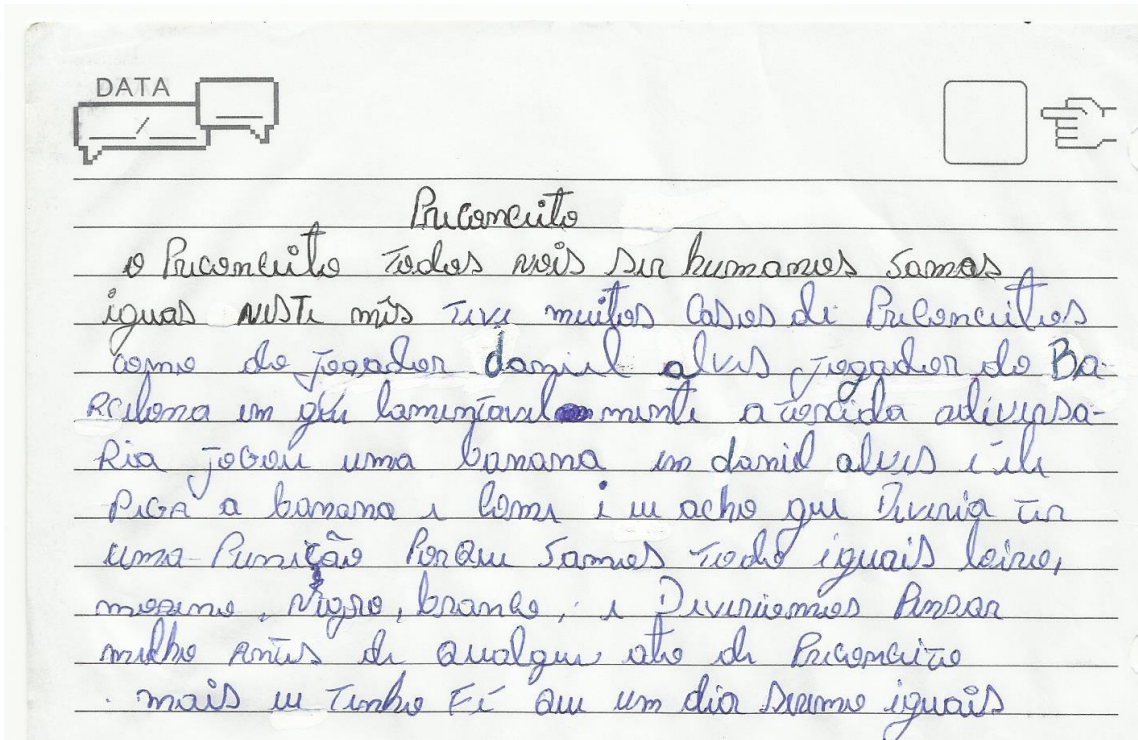 DATA
/
Preconceito
o Preconceito Todos nois ser humanos somos
iguas NESTE mês Teve muitos Casos de Preconceitos
como do jogador daniel alves jogador do Ba-
Rcelona em que lamentavel mente a torcida adiversa-
Ria jogou uma banana em daniel alves e ele
PEGA a banana e Come e eu acho que Deveria Ter
uma Punição PorQue Somos Todo iguais loiro,
moreno, Negro, branco, e Deveriemos Pensar
melho Antes de Qualque ato de Preconceito
mais eu Tenho Fé Que um dia seremo iguais